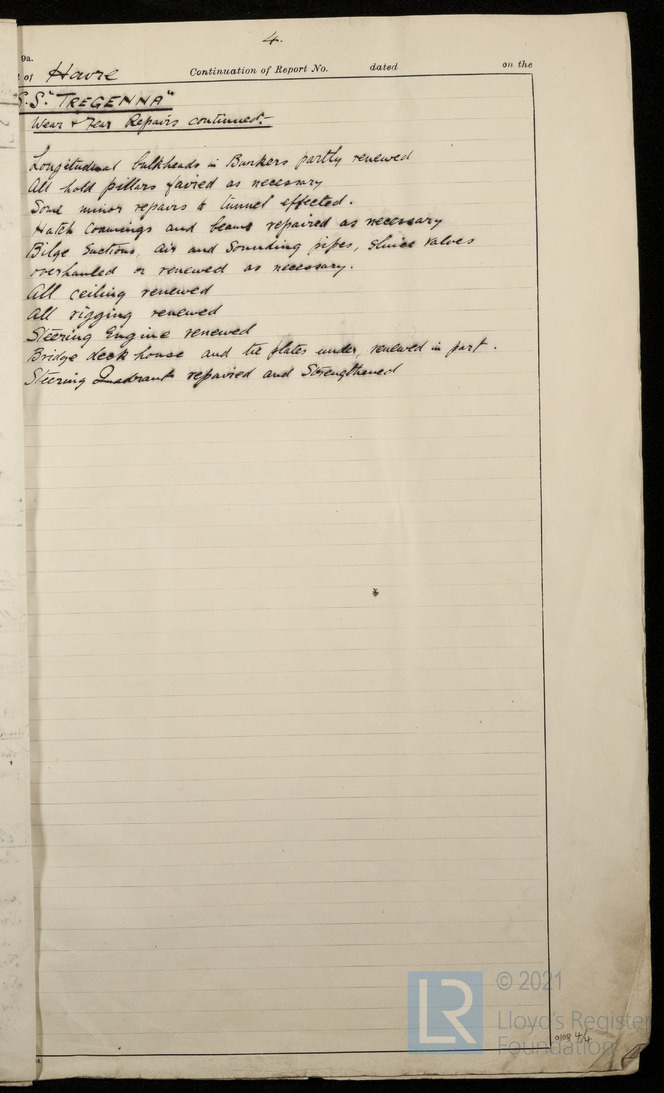 4.
9a.
of Havre Continuation of Report No. dated on the
S.S. "TREGENNA"
Wear & Tear Repairs continued:-
Longitudinal bulkheads in Bunkers partly renewed
All hold pillars faired as necessary
Some minor repairs to tunnel effected.
Hatch Coamings and beams repaired as necessary
Bilge Suctions, air and Sounding pipes, sluice valves
overhauled or renewed as necessary.
All ceiling renewed
All rigging renewed
Steering Engine renewed
Bridge deck house and tie plates under, renewed in part.
Steering Quadrant repaired and Strengthened
LR
© 2021
Lloyd's Register
Foundation
0108 4/4